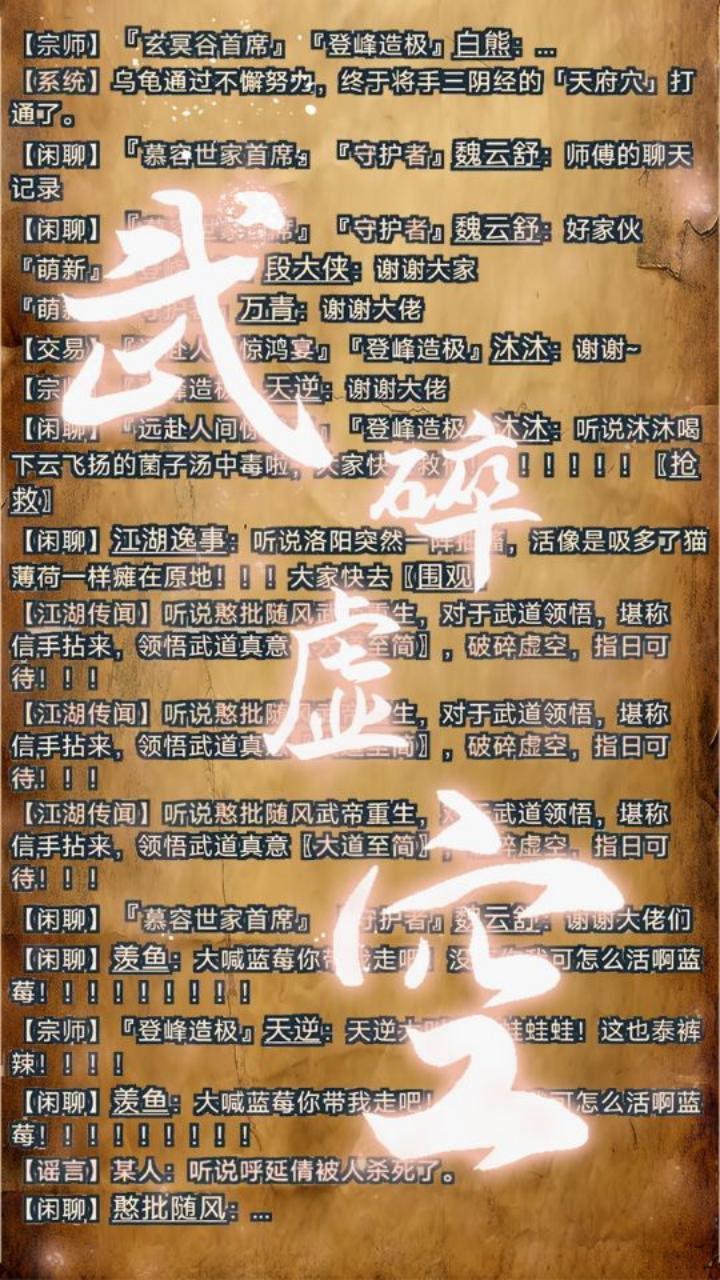 【宗师】『玄冥谷首席』『登峰造极』白熊：…
【系统】乌龟通过不懈努力，终于将手三阴经的「天府穴」打
通了。
【闲聊】『慕容世家首席』『守护者』魏云舒：师傅的聊天
记录
【闲聊】 『守护者』魏云舒：好家伙
『萌新』 段大侠：谢谢大家
『萌 万青：谢谢大佬
【交易】 惊鸿宴』『登峰造极』沐沐：谢谢~
【宗 峰造极 天逆：谢谢大佬
【闲聊】『远赴人间 』『登峰造极』沐沐：听说沐沐喝
下云飞扬的菌子汤中毒啦，大家快 ！！！！！！〖抢
救〗
【闲聊】江湖逸事：听说洛阳突然一阵抽 ，活像是吸多了猫
薄荷一样瘫在原地！！！大家快去〖围观〗
【江湖传闻】听说憨批随风武帝重生，对于武道领悟，堪称
信手拈来，领悟武道真意〖大道至简〗，破碎虚空，指日可
待！！！
【江湖传闻】听说憨批随风武帝重生，对于武道领悟，堪称
信手拈来，领悟武道真意〖大道至简〗，破碎虚空，指日可
待！！！
【江湖传闻】听说憨批随风武帝重生，对于武道领悟，堪称
信手拈来，领悟武道真意〖大道至简〗，破碎虚空，指日可
待！！！
【闲聊】『慕容世家首席』『守护者』魏云舒：谢谢大佬们
【闲聊】羡鱼：大喊蓝莓你带我走吧！没 可怎么活啊蓝
莓！！！！！！！！！
【宗师】『登峰造极』天逆：天逆大 蛙蛙蛙！这也泰裤
辣！！！！
【闲聊】羡鱼：大喊蓝莓你带我走吧！ 可怎么活啊蓝
莓！！！！！！！！！
【谣言】某人：听说呼延倩被人杀死了。
【闲聊】憨批随风：…
武
碎
虚
空